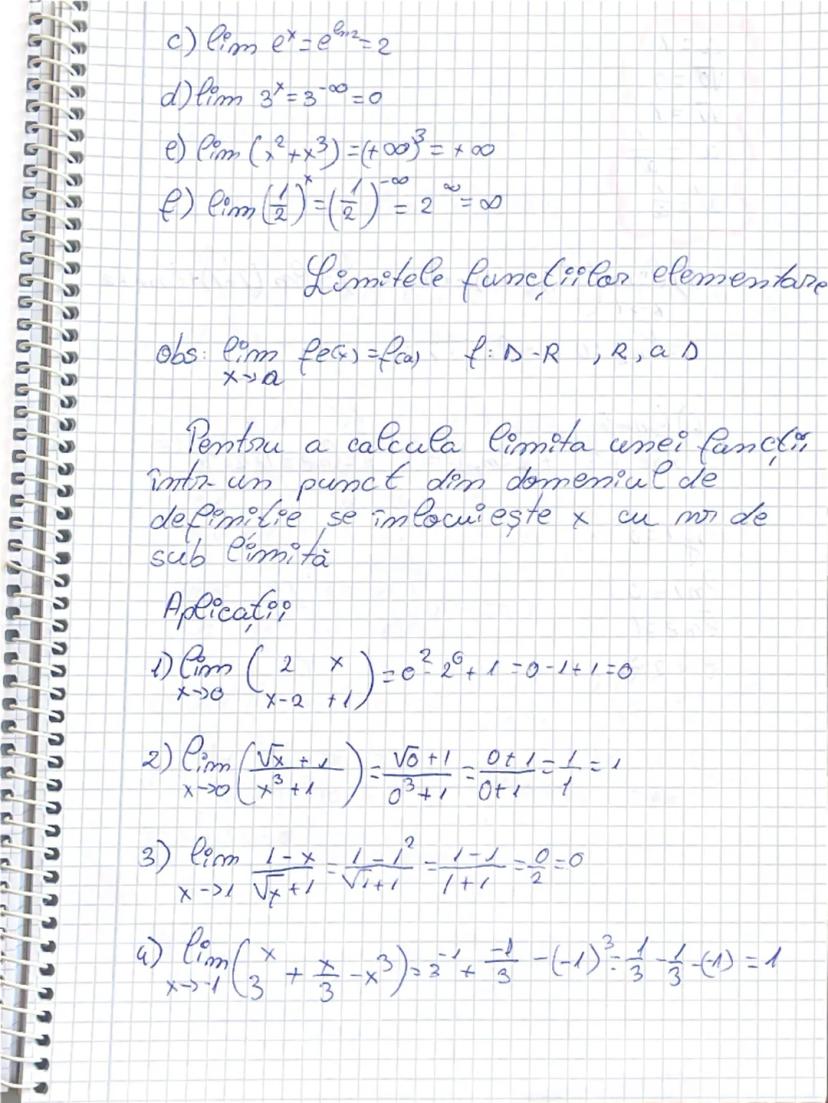 c) lim eˣ = e^ln2 = 2
d) lim 3ˣ = 3^-∞ = 0
e) lim (x² + x³) = (+∞)³ = +∞
f) lim (1/2)ˣ = (1/2)^-∞ = 2^∞ = ∞
Limitele funcțiilor elementare
obs: lim fe(x) = f(a) f: D-R , R, a D
x→a
Pentru a calcula limita unei funcții
într-un punct din domeniul de
definiție se înlocuiește x cu nr de
sub limită
Aplicații
1) lim (2 x
x→0 x-2 +1) = 0² - 2⁰ + 1 = 0-1+1 = 0
2) lim ((√x + 1)/(x³ + 1)) = (√0 + 1)/(0³ + 1) = (0+1)/(0+1) = 1/1 = 1
x→0
3) lim (1-x)/(√x + 1) = (1-1²)/(√1 + 1) = (1-1)/(1+1) = 0/2 = 0
x→1
4) lim (3ˣ + x/3 - x³) = 3⁻¹ + -1/3 - (-1)³ = 1/3 - 1/3 - (-1) = 1
x→-1